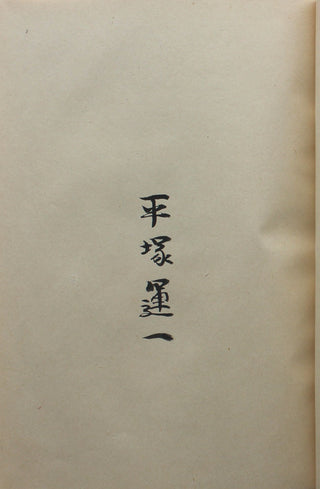 平塚運一